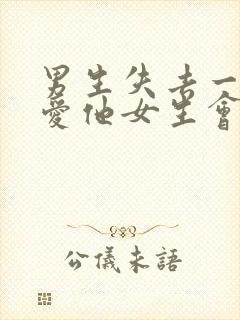 男生失去一
愛他女生會
公儀未語